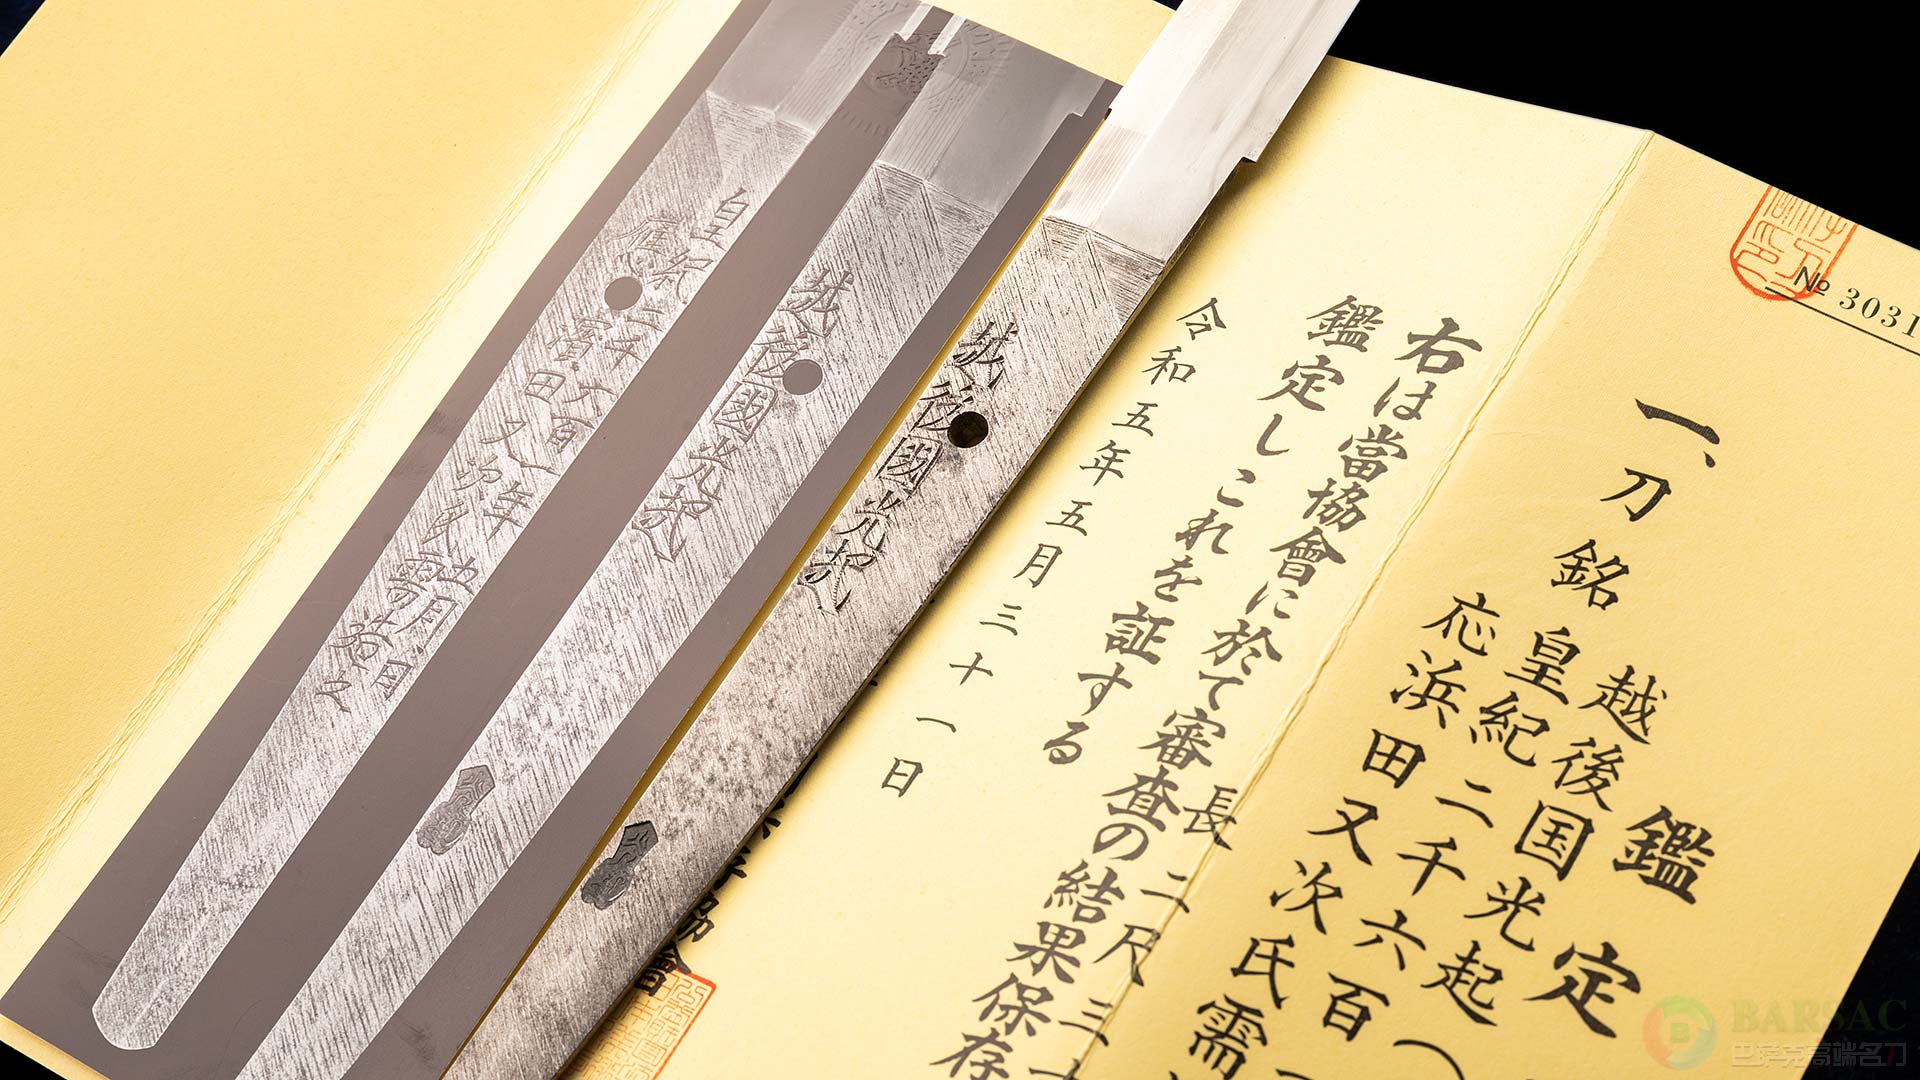 № 3031
鑑定
一、刀 銘 越後国光起(
皇紀二千六百一
応浜田又次氏需
長 二尺三十
右は當協會に於て審査の結果保存
鑑定しこれを証する
令和五年五月三十一日
協會
越後國光起
越後國光起
皇紀二千六百一年五月日
應濱田又次氏需造之
BARSAC
巴萨克高端名刀